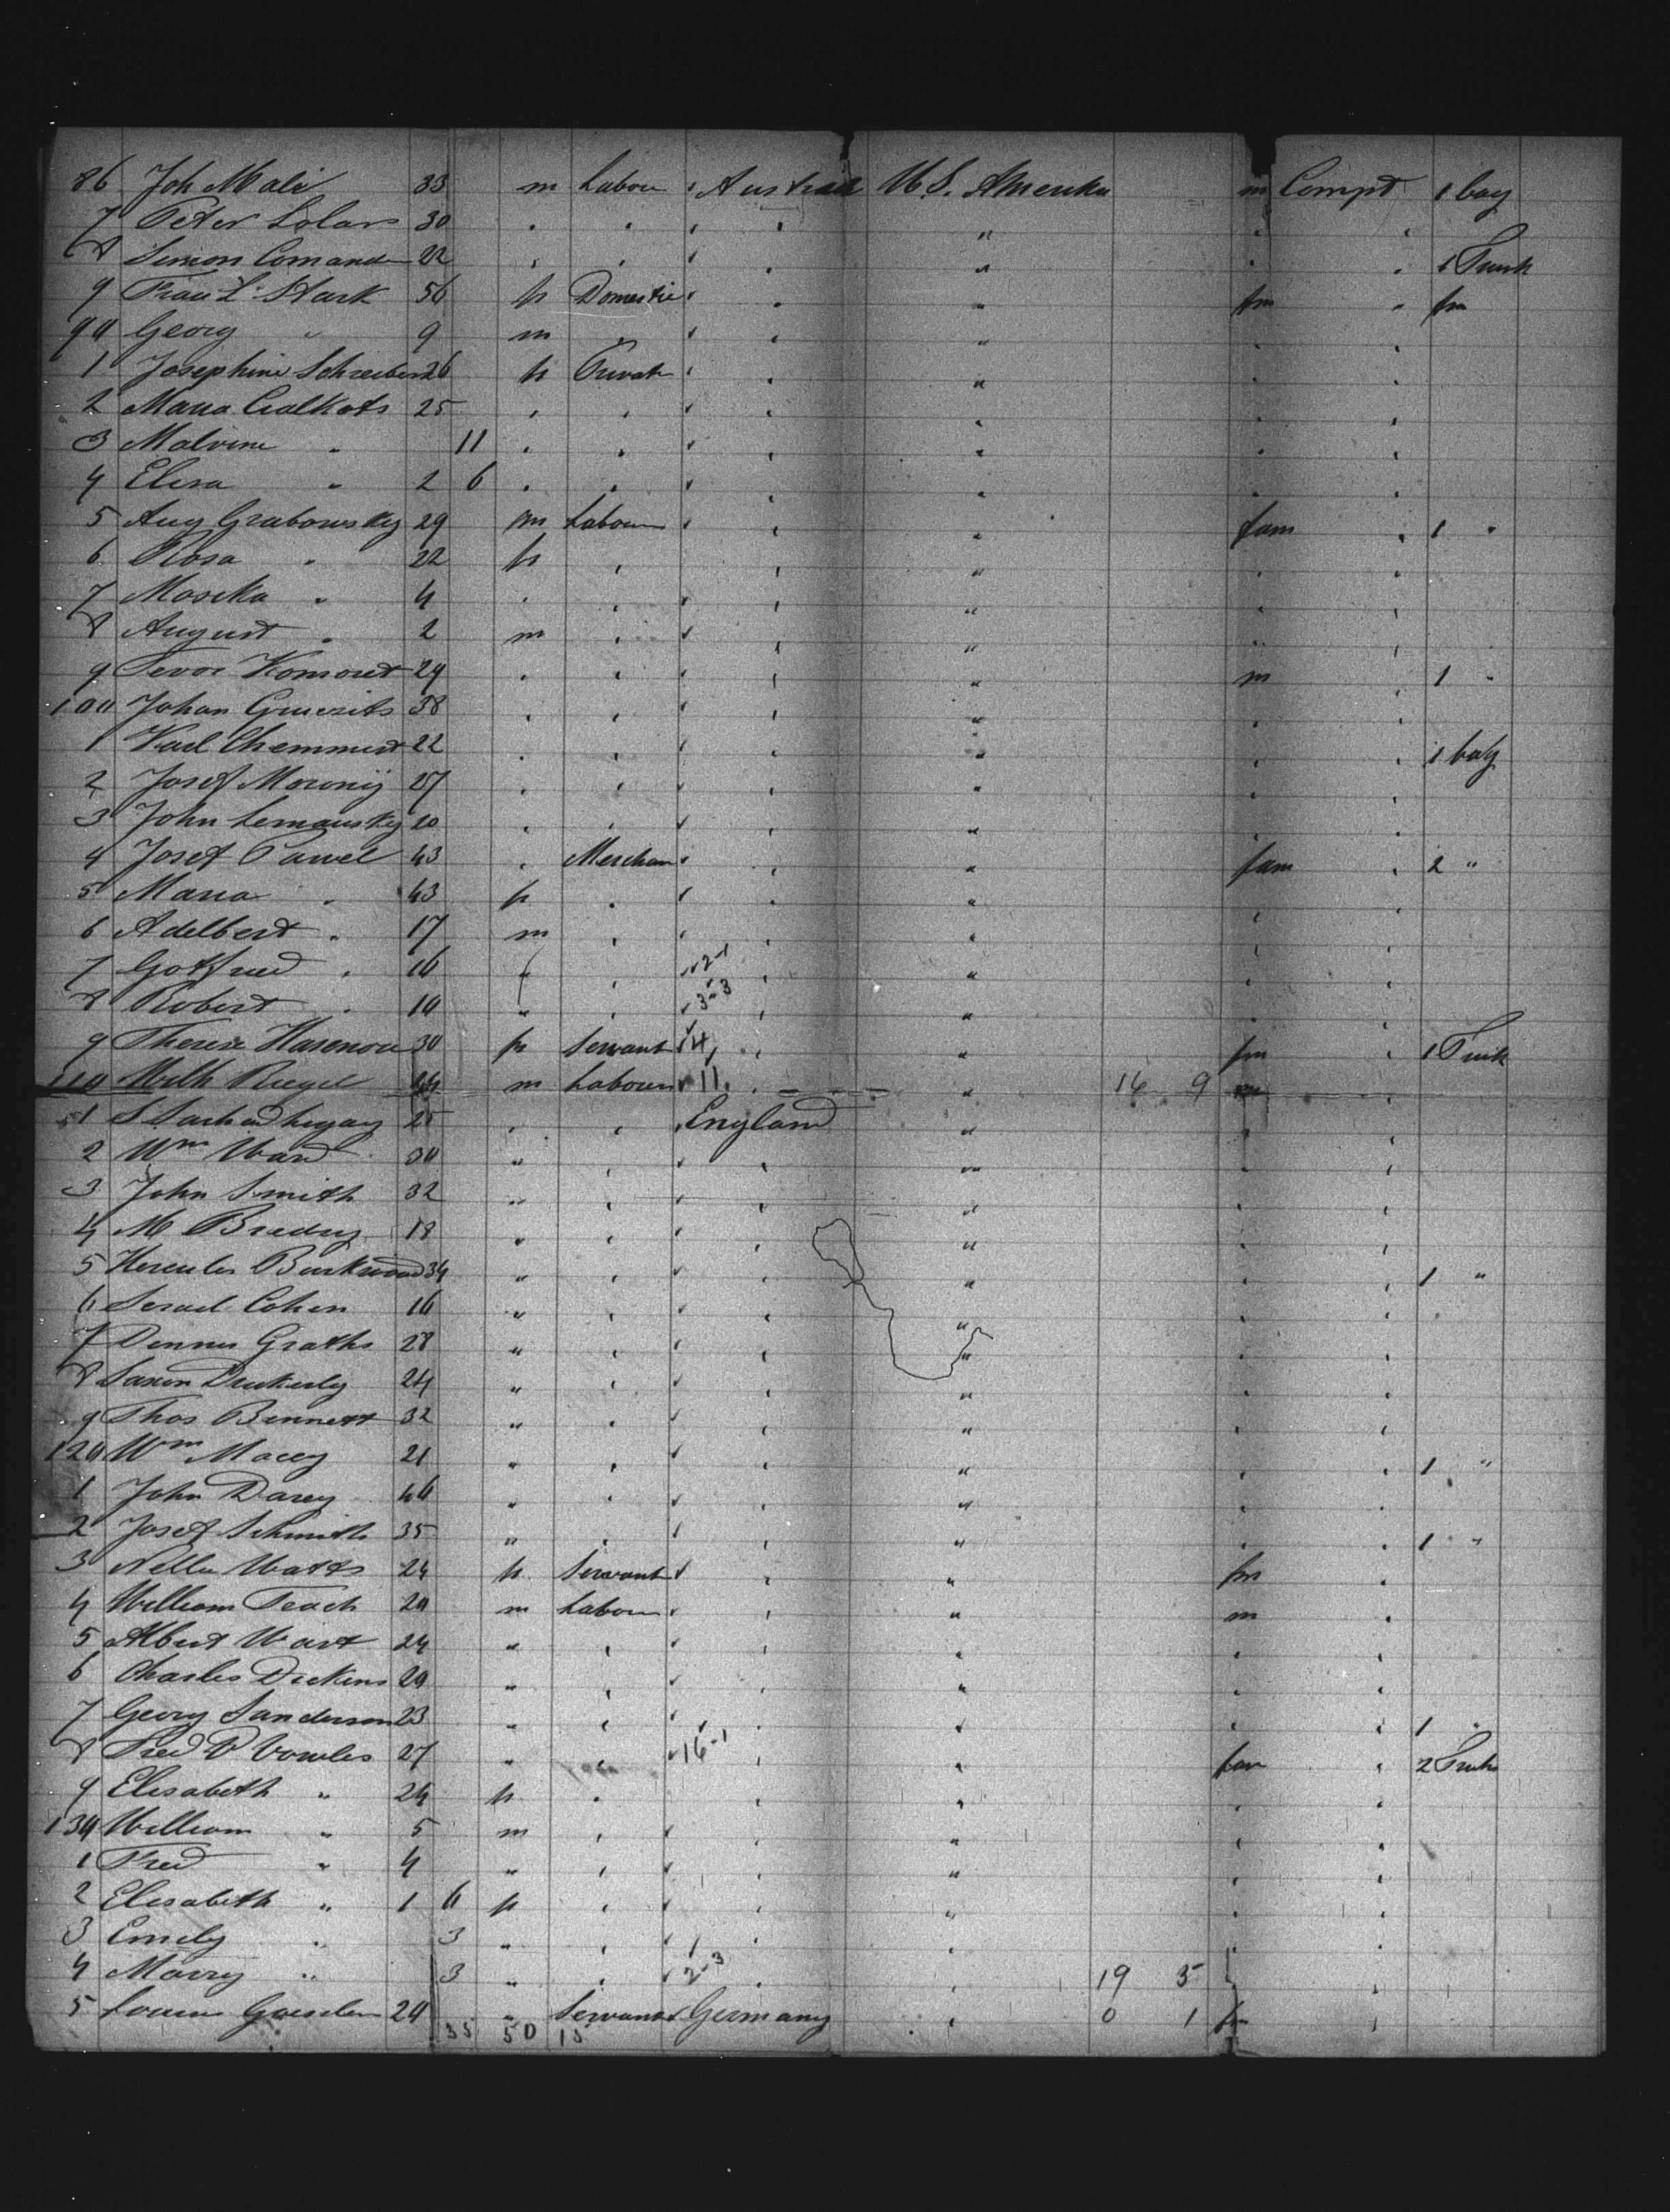 86 Joh Mali 33 m Labour Austria U.S. Amerika m Compt 1 bag
7 Peter Solar 30 " " " "
8 Simon Comand 22 " " " " 1 Trunk
9 Frau L. Stark 56 f Domestic " " fm " fm
90 Georg " 9 m " "
1 Josephine Schreiber 26 f Privat " "
2 Maria Cialkots 25 " " " "
3 Malvine " 11 " " " "
4 Elisa " 2 6 " " " "
5 Aug Grabowsky 29 m Labour " " fam " 1 "
6 Rosa " 22 f " " "
7 " 4 " " " "
8 August " 2 m " " "
9 Komoret 24 " " " " m " 1 "
100 Johan 38 " " " "
1 Karl 22 " " " " 1 bag
2 Josef 27 " " " "
3 John 20 " " " "
4 Josef Pawel 43 " Merchan " " fam " 2 "
5 Maria " 43 f " " "
6 Adelbert " 17 m " " "
7 Gotfried " 16 " " 2-1 " "
8 Robert " 10 " " 3-3 " "
9 Therese 30 f Servant 4 " " fm " 1 Trunk
110 Wilh Riegel 24 m Labour 11 " " 16 9 m "
1 25 " " England "
2 Wm Ward 30 " " " "
3 John Smith 32 " " " "
4 M 18 " " " "
5 Hercules Burkwood 34 " " " " 1 "
6 Israel Cohen 16 " " " "
7 Dennis Graths 28 " " " "
8 24 " " " "
9 Thos Bennett 32 " " " "
120 Wm Macey 21 " " " " 1 "
1 John Darcy 46 " " " "
2 Josef Schmith 35 " " " " 1 "
3 Nellie Watts 24 f Servant " " fm "
4 William Teach 20 m Labour " " m "
5 Albert 24 " " " "
6 Charles Dickens 20 " " " "
7 Georg Sanderson 23 " " " " 1 "
8 Fred Vowles 27 " " 16-1 " " fam " 2 Trunks
9 Elisabeth " 24 f " " "
130 William " 5 m " " "
1 Fred " 4 " " " "
2 Elisabeth " 1 6 f " " "
3 Emily " 3 " " 1 " "
4 Marry " 3 " " 2-3 " " 19 5
5 24 " Servant Germany " 0 1 fm "
35 50 15